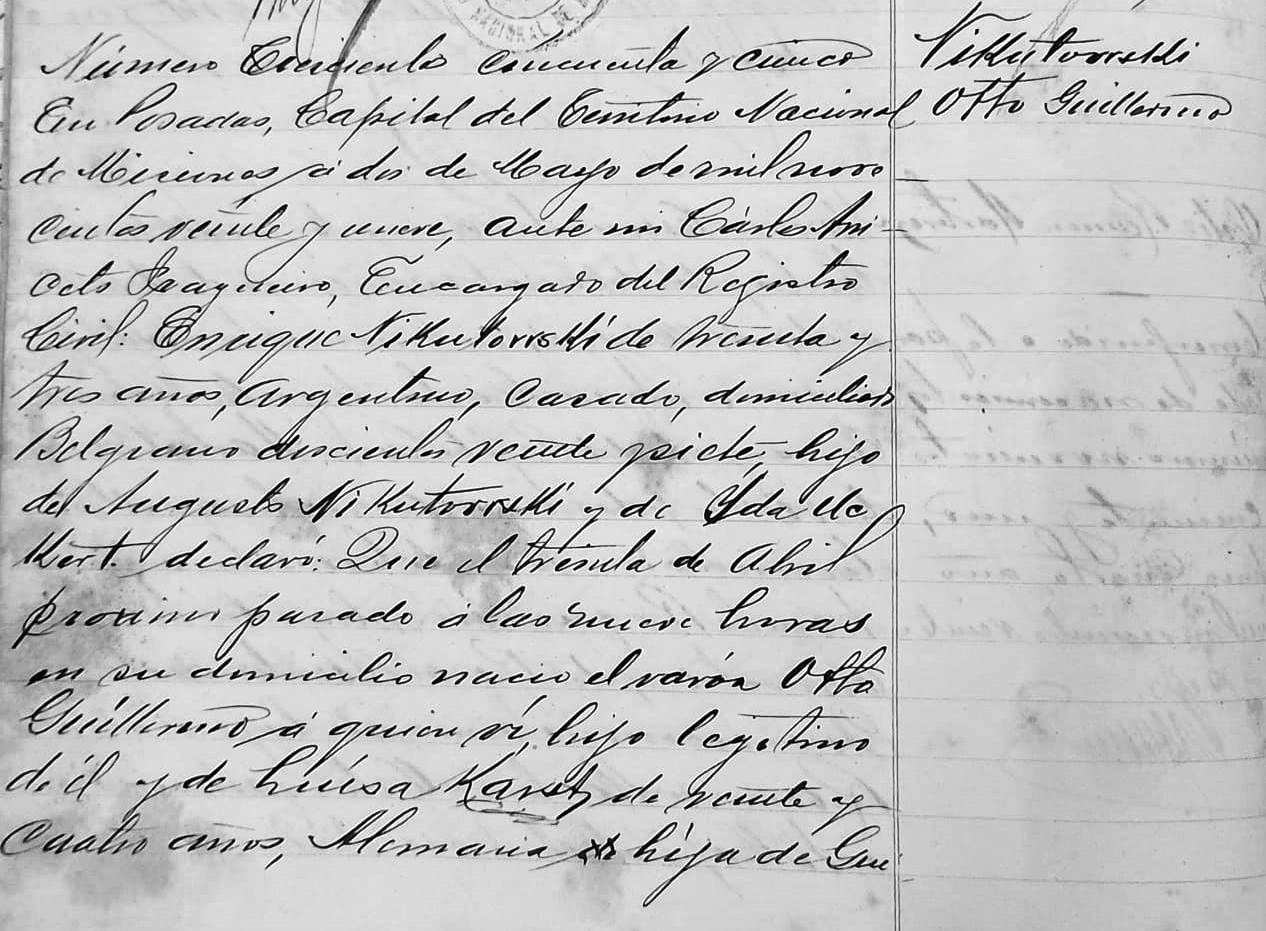 NACIONAL DE
Número Trecientos cincuenta y cinco
En Posadas, Capital del Territorio Nacional
de Misiones á dos de Mayo de mil nove
cientos veinte y nueve, ante mi Cárlos Ani-
ceto, Encargado del Registro
Civil: Enrique Nikutowski de treinta y
tres años, argentino, casado, domiciliado
Belgrano doscientos veinte y siete, hijo
de Augusto Nikutowski y de Yda
declaró: Que el treinta de Abril
proximo pasado á las nueve horas
en su domicilio nació el varón Otto
Guillermo á quien ví, hijo legitimo
de él y de Luisa Karst, de veinte y
cuatro años, Alemana hija de Gui
Nikutowski
Otto Guillermo